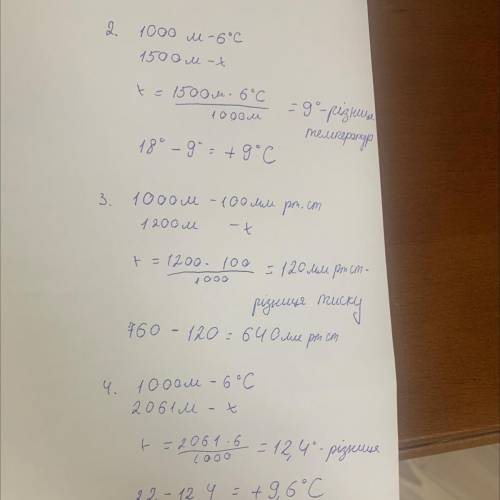 2. 1000 м - 6°C
1500 м - x
x = 1500м · 6°C / 1000м = 9° - різниця температур
18° - 9° = + 9°C
3. 1000 м - 100 мм рт.ст
1200 м - x
x = 1200 · 100 / 1000 = 120 мм рт ст - різниця тиску
760 - 120 = 640 мм рт ст
4. 1000 м - 6°C
2061 м - x
x = 2061 · 6 / 1000 = 12,4° - різниця
22 - 12,4 = + 9,6°C